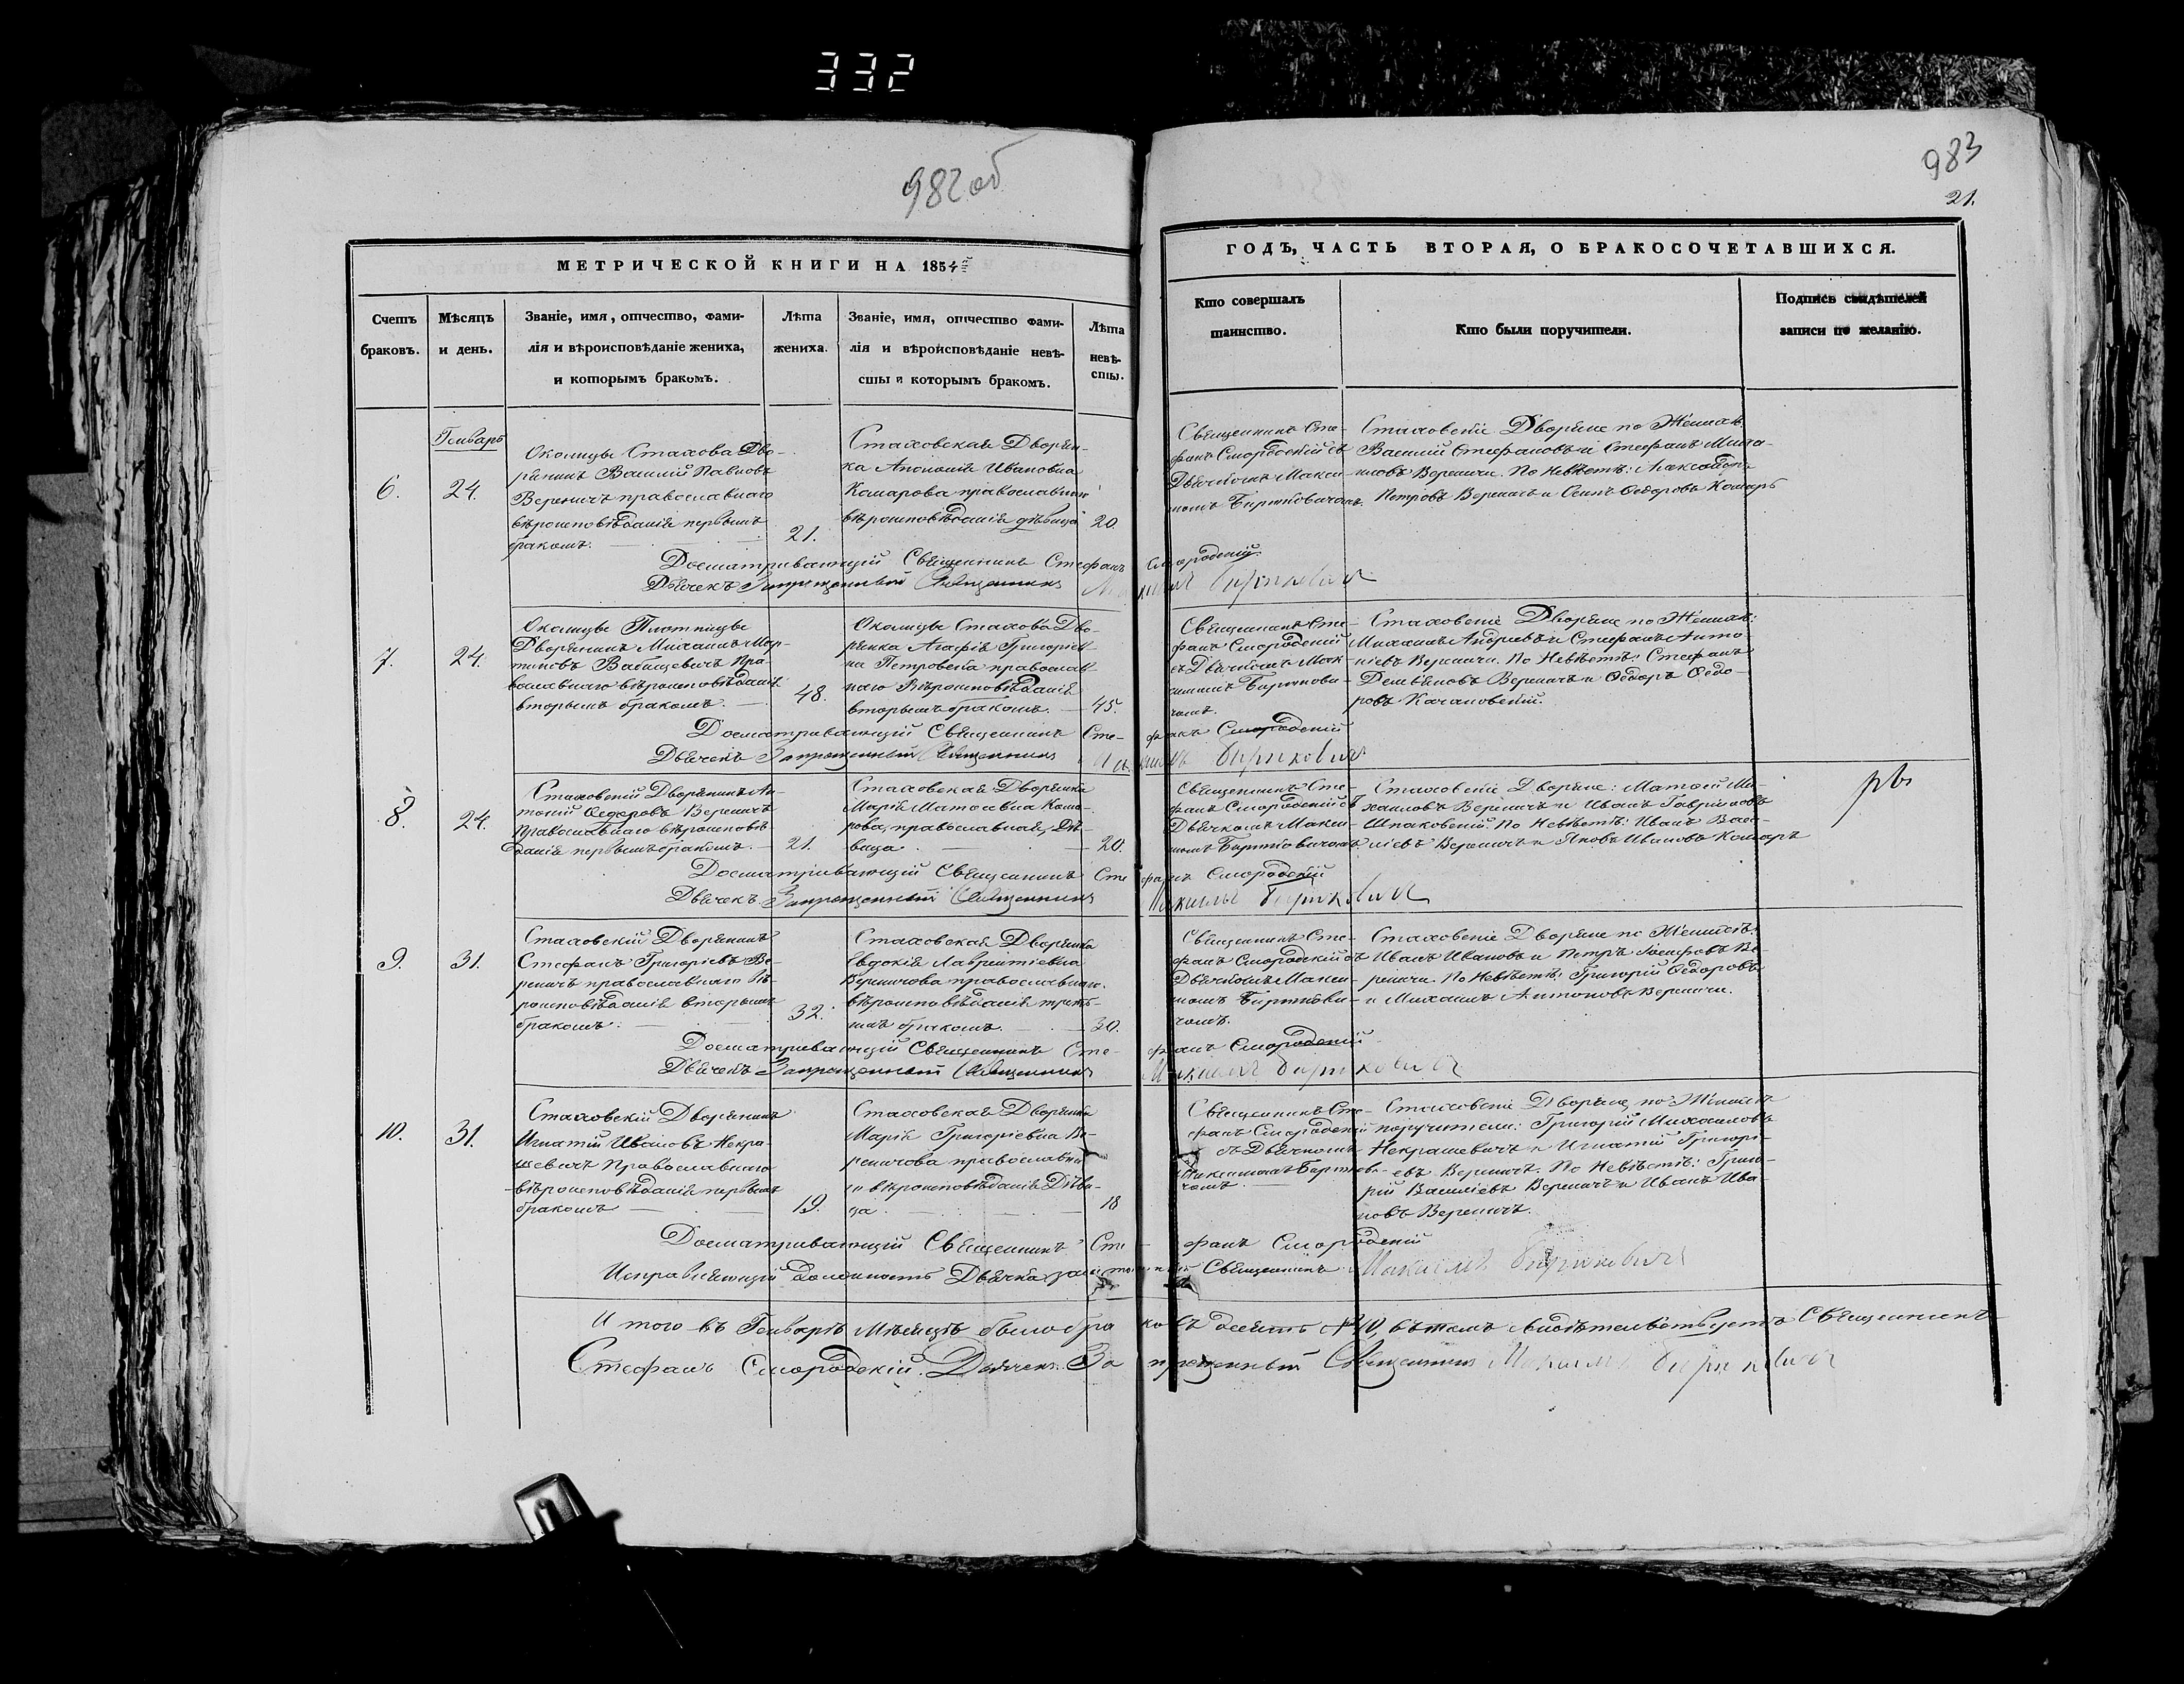 332
982 об
983
21.
МЕТРИЧЕСКОЙ КНИГИ НА 1854
ГОДЪ, ЧАСТЬ ВТОРАЯ, О БРАКОСОЧЕТАВШИХСЯ.
Счетъ браковъ.
Мѣсяцъ и день.
Званіе, имя, отчество, фами-
лія и вѣроисповѣданіе жениха,
и которымъ бракомъ.
Лѣта жениха.
Званіе, имя, отчество фами-
лія и вѣроисповѣданіе невѣ-
сты и которымъ бракомъ.
Лѣта невѣ-
сты.
Кто совершалъ
таинство.
Кто были поручители.
Подпись свидѣтелей
записи по желанію.
Генварь
6.
24.
Околицы Стахова Дво-
рянинъ Василій Павловъ
Вереничъ православнаго
вѣроисповѣданія первымъ
бракомъ.
21.
Стаховская Дворян-
ка Аполонія Ивановна
Комарова православнаго
вѣроисповѣданія дѣвица
20.
Священникъ Сте-
фанъ Смородскій съ
Дьячкомъ Макси-
момъ Бирюковичомъ.
Стаховскіе Дворяне по Женихѣ
Василій Стефановъ и Стефанъ Миха-
иловъ Вереничи. По Невѣстѣ:
Петровъ Вереничъ и Осипъ Ѳедоровъ Комаръ
Досматривающій Священникъ Стефанъ Смородскій.
Дьячекъ Запрещенный Священникъ Максимъ Бирюковичъ
7.
24.
Околицы Плотницы
Дворянинъ Михаилъ Мар-
тиновъ Вабищевичъ Пра-
вославнаго вѣроисповѣданія
вторымъ бракомъ.
48.
Околицы Стахова Дво-
рянка Агафія Григорiев-
на Петровская православ-
наго Вѣроисповѣданія
вторымъ бракомъ.
45.
Священникъ Сте-
фанъ Смородскій
съ Дьячкомъ Мак-
симомъ Бирюкови-
чомъ.
Стаховскіе Дворяне по Женихѣ:
Михаилъ Андреевъ и Стефанъ Анто-
ніевъ Вереничи. По Невѣстѣ: Стефанъ
Демьяновъ Вереничъ и Ѳедоръ Ѳедо-
ровъ Качановскій.
Досматривающій Священникъ Сте-
фанъ Смородскій
Дьячекъ Запрещенный Священникъ Максимъ Бирюковичъ
8.
24.
Стаховскій Дворянинъ Ан-
тоній Ѳедоровъ Вереничъ
Православнаго вѣроисповѣ-
данія первымъ бракомъ.
21.
Стаховская Дворянка
Марія Матѳеевна Кома-
рова, православная, Дѣ-
вица.
20.
Священникъ Сте-
фанъ Смородскій съ
Дьячкомъ Макси-
момъ Бирюковичомъ.
Стаховскіе Дворяне: Матѳей Ми-
хаиловъ Вереничъ и Иванъ Гавриловъ
Шпаковскій. По Невѣстѣ: Иванъ Васи-
ліевъ Вереничъ и Яковъ Ивановъ Комаръ
Досматривающій Священникъ Стефанъ Смородскій
Дьячекъ Запрещенный Священникъ Максимъ Бирюковичъ
9.
31.
Стаховскій Дворянинъ
Стефанъ Григоріевъ Ве-
реничъ православнаго Вѣ-
роисповѣданія вторымъ
бракомъ.
32.
Стаховская Дворянка
Евдокія Лаврентіевна
Вереничова православнаго
вѣроисповѣданія треть-
имъ бракомъ.
30.
Священникъ Сте-
фанъ Смородскій съ
Дьячкомъ Макси-
момъ Бирюкови-
чомъ.
Стаховскіе Дворяне по Женихѣ:
Иванъ Ивановъ и Петръ Іосифовъ Ве-
реничи. По Невѣстѣ: Григорій Ѳедоровъ
и Михаилъ Антоновъ Вереничи.
Досматривающій Священникъ Сте-
фанъ Смородскій
Дьячекъ Запрещенный Священникъ Максимъ Бирюковичъ
10.
31.
Стаховскій Дворянинъ
Игнатій Ивановъ Некра-
шевичъ Православнаго
вѣроисповѣданія первымъ
бракомъ
19.
Стаховская Дворянка
Марія Григоріевна Ве-
реничова православна-
го вѣроисповѣданія Дѣви-
ца.
18
Священникъ Сте-
фанъ Смородскій
съ Дьячкомъ
Максимомъ Бирюкови-
чомъ.
Стаховскіе Дворяне по Женихѣ
поручители: Григорій Михаиловъ
Некрашевичъ и Игнатій Григорі-
евъ Вереничъ. По Невѣстѣ: Григо-
рій Василіевъ Вереничъ и Иванъ Ива-
новъ Вереничъ.
Досматривающій Священникъ Сте-
фанъ Смородскій
Исправляющій должность Дьячка Священникъ Максимъ Бирюковичъ
И того въ Генварѣ Мѣсяцѣ было браковъ десять №10, въ томъ свидѣтельствуетъ Священникъ
Стефанъ Смородскій. Дьячекъ Запрещенный Священникъ Максимъ Бирюковичъ